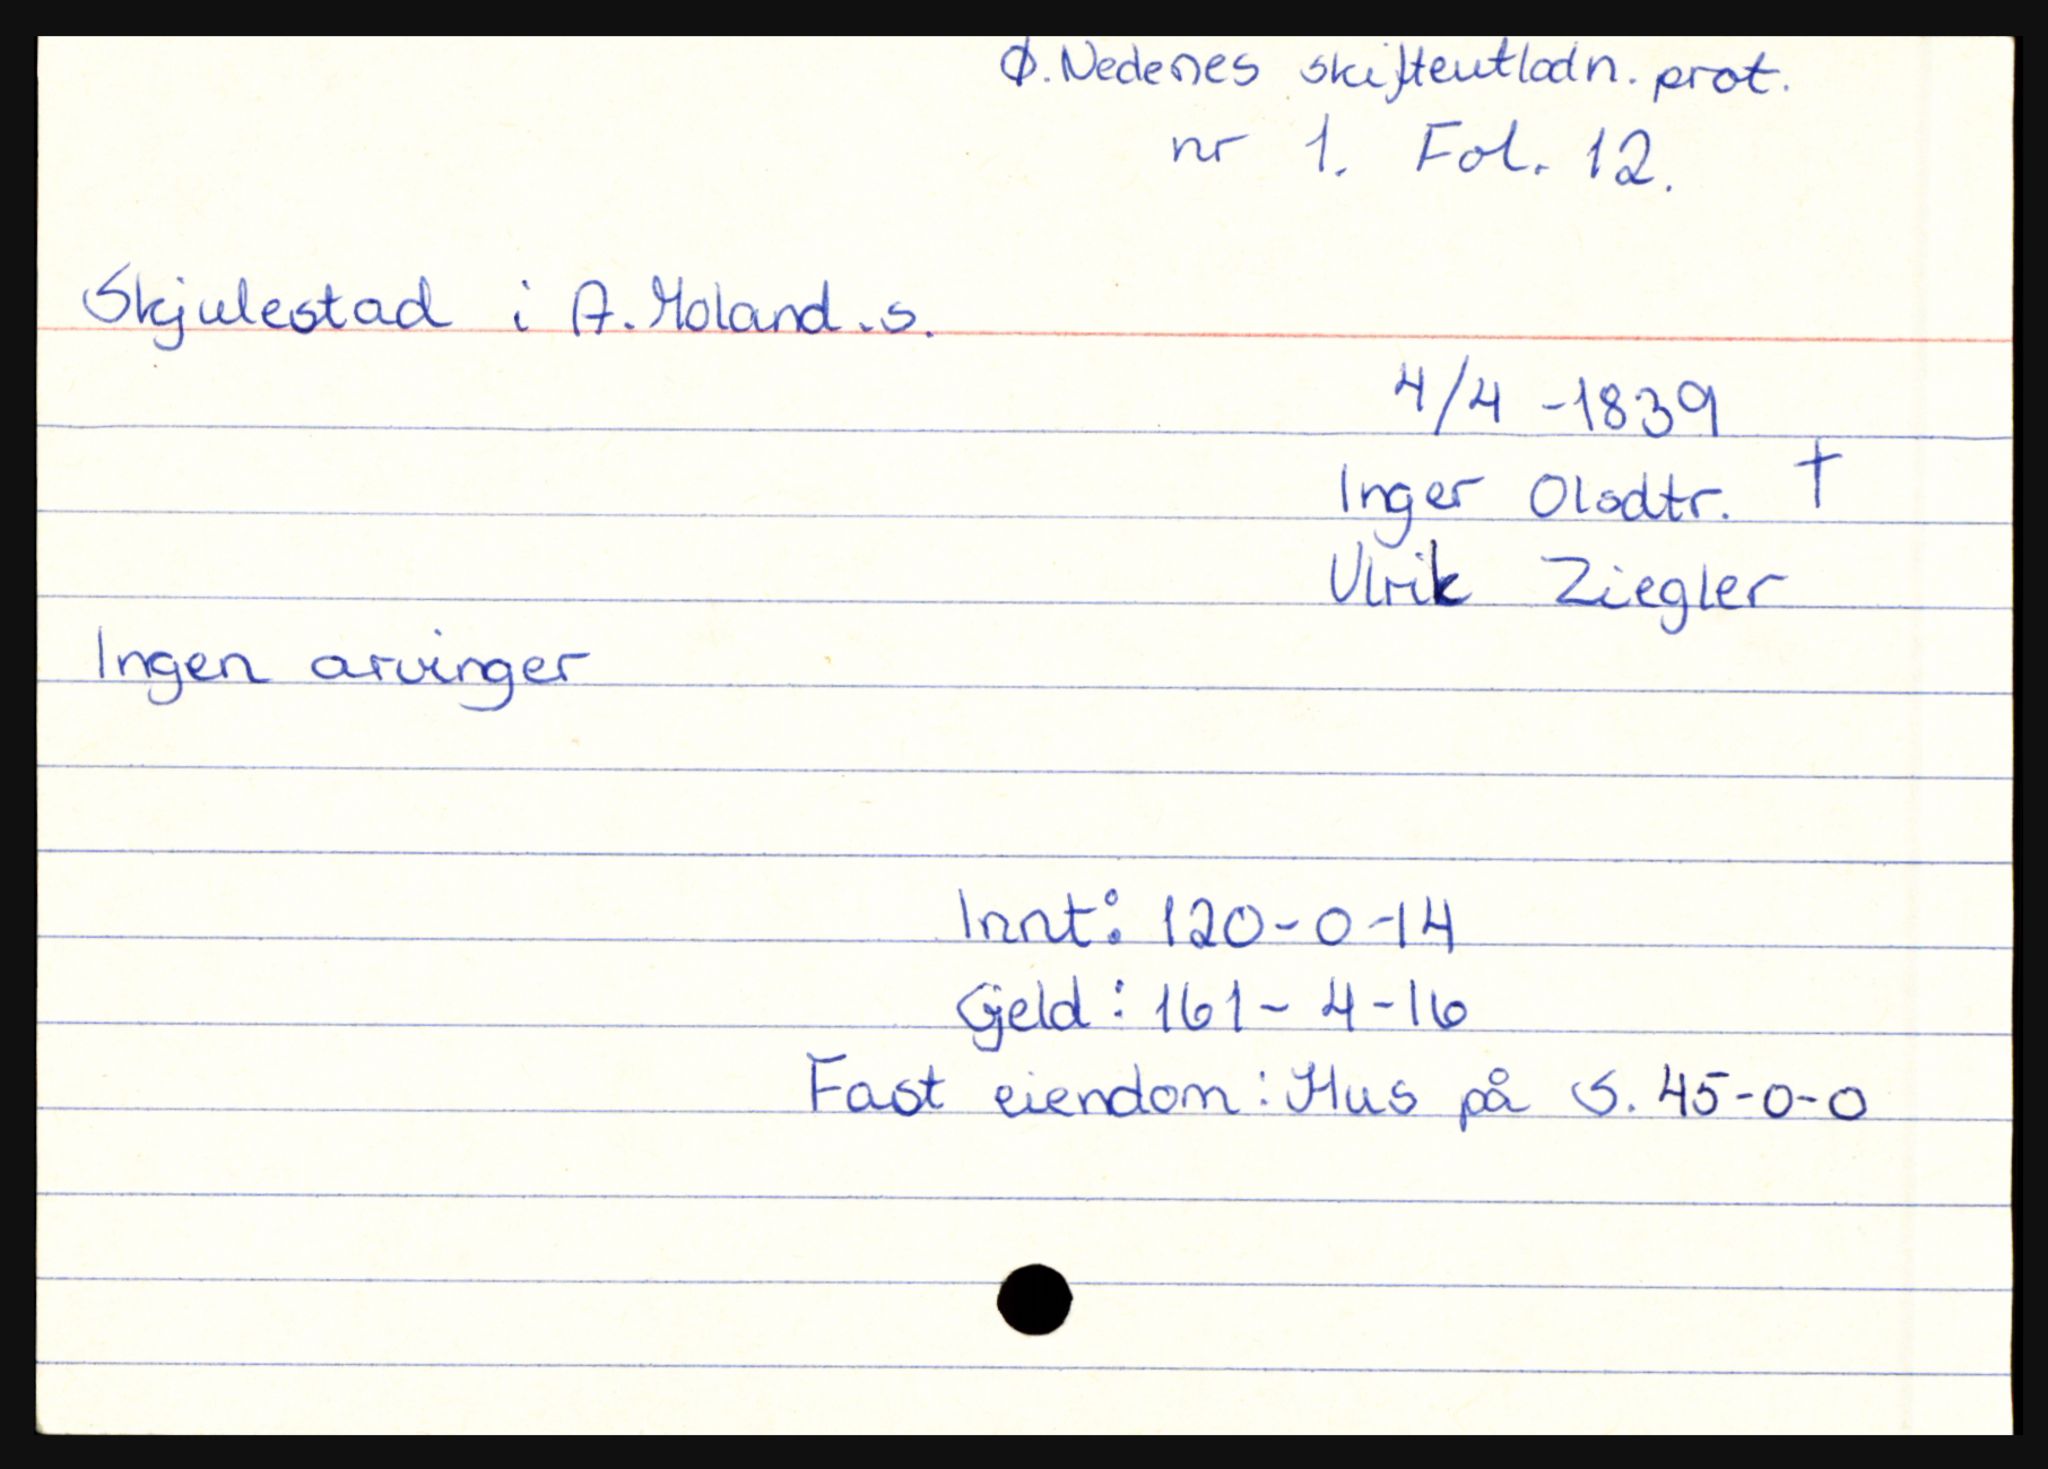 Ø. Nedenes skifteutlodn. prot.
nr 1. Fol. 12.
Skjulestad i A. Moland.s.
4/4 -1839
Inger Olsdtr. †
Ulrik Ziegler
Ingen arvinger
Innt: 120-0-14
Gjeld: 161-4-16
Fast eiendom: Hus på S. 45-0-0